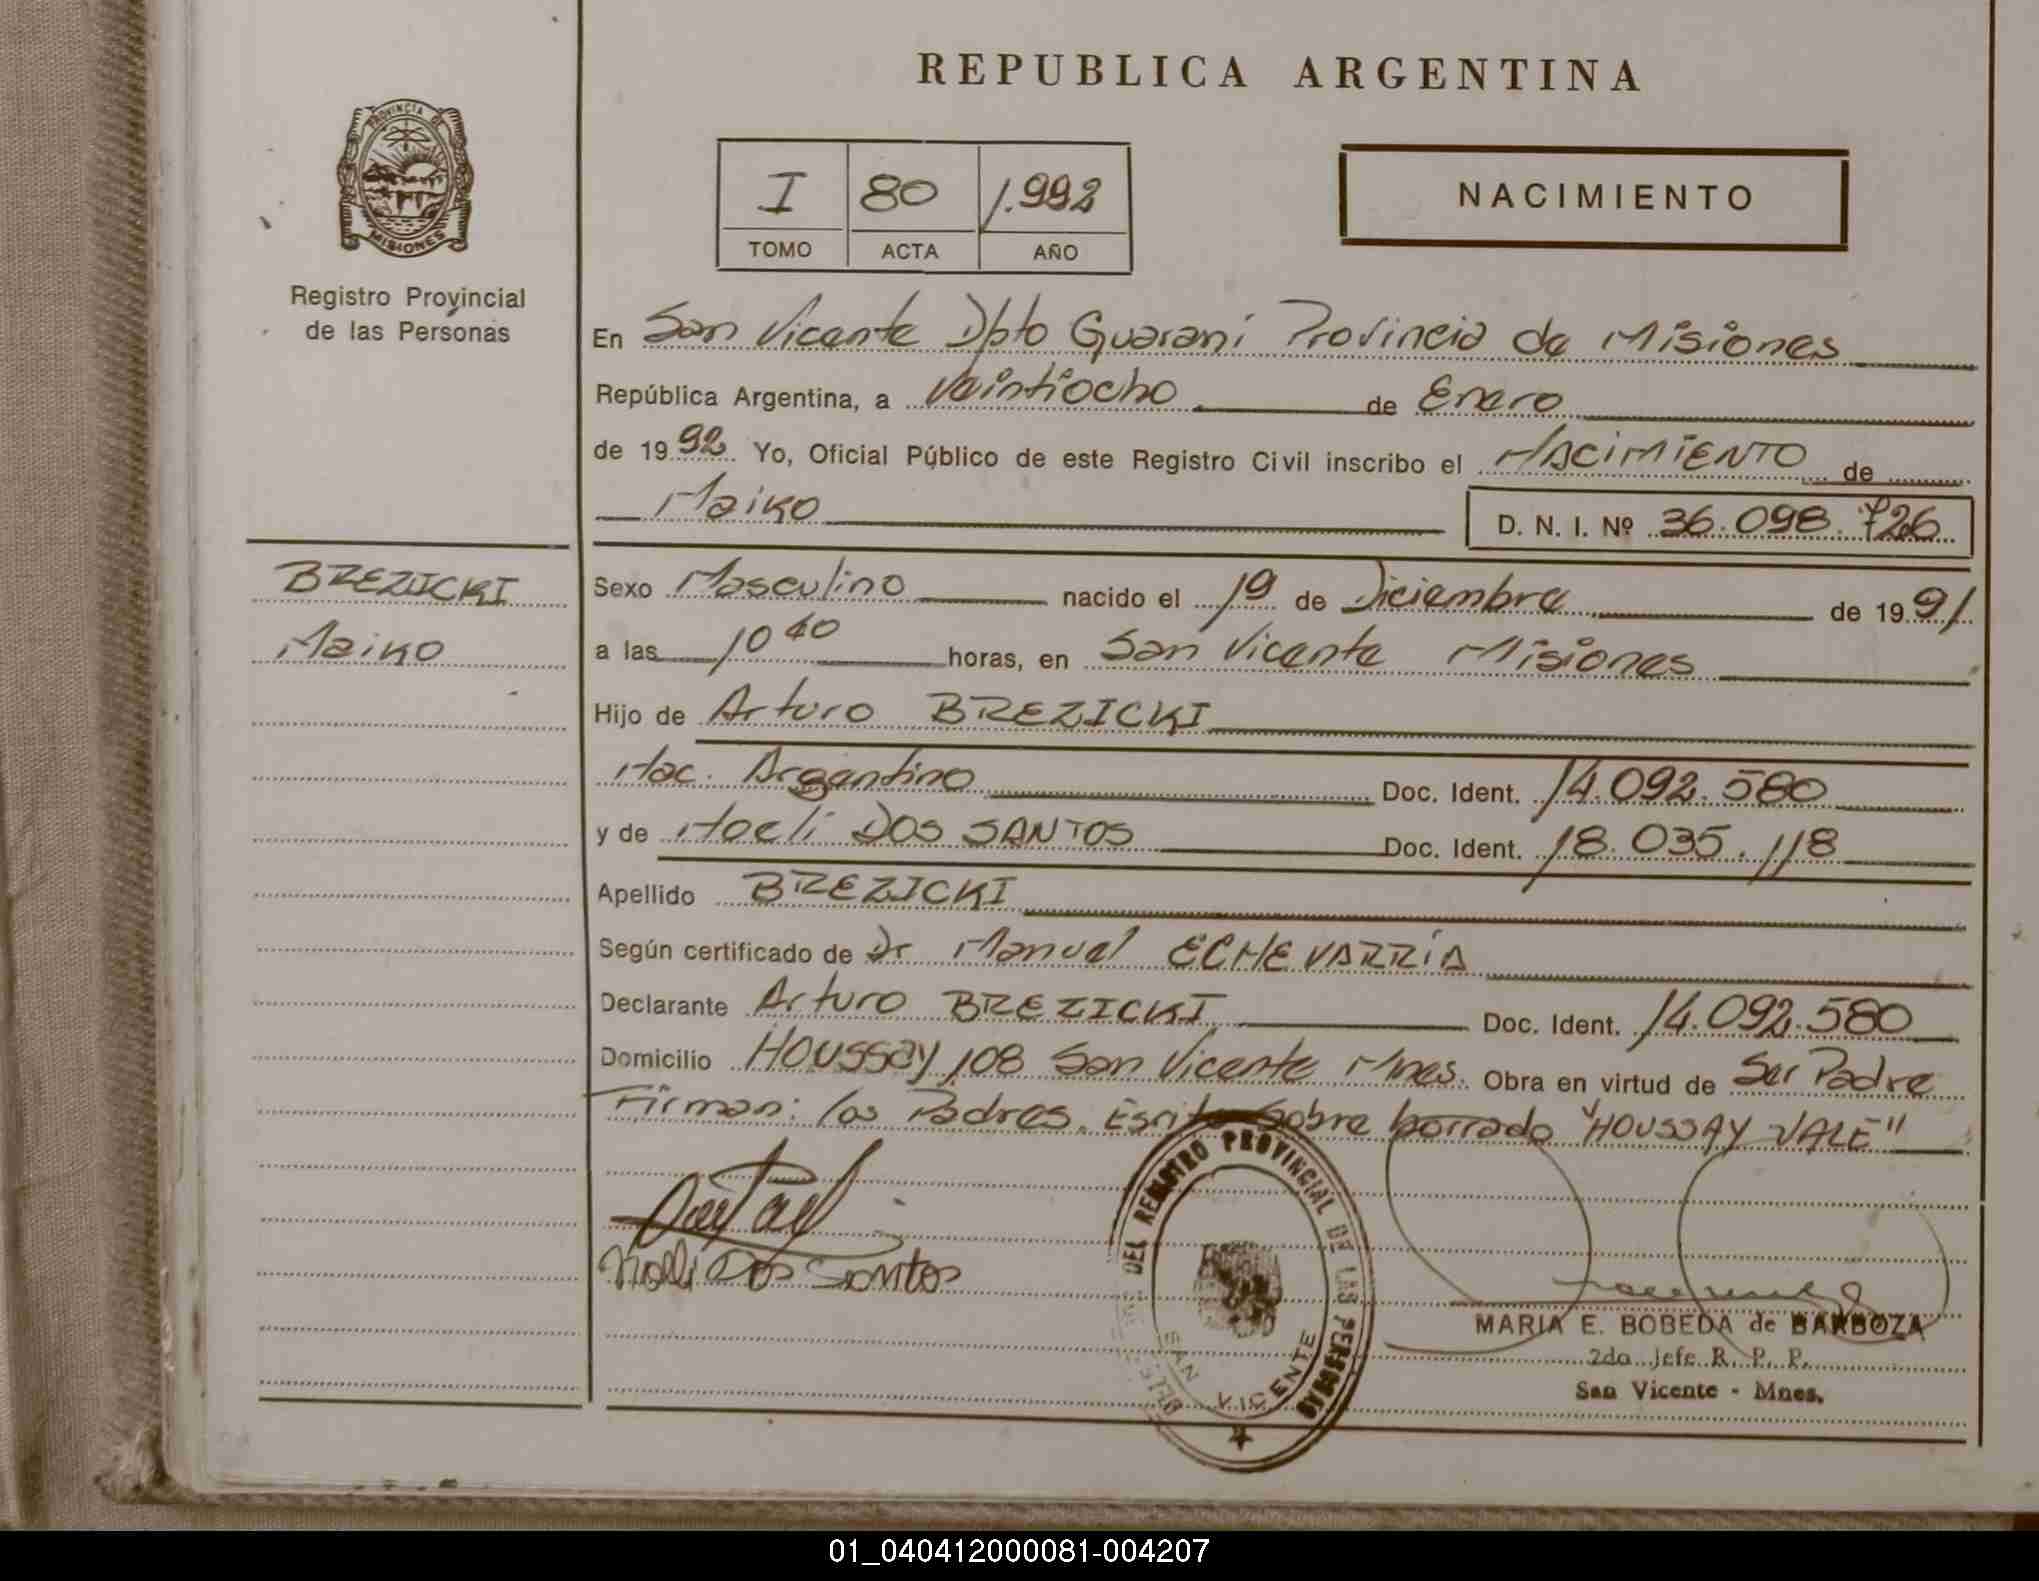 REPUBLICA ARGENTINA
PROVINCIA DE
MISIONES
Registro Provincial
de las Personas
I 80 1.992
TOMO ACTA AÑO
NACIMIENTO
En San Vicente Dpto Guaraní Provincia de Misiones
República Argentina, a veintiocho de Enero
de 1992 Yo, Oficial Público de este Registro Civil inscribo el NACIMIENTO de
Maiko
D. N. I. Nº 36.098.726
BREZICKI
Maiko
Sexo Masculino nacido el 19 de Diciembre de 1991
a las 10 40 horas, en San Vicente Misiones
Hijo de Arturo BREZICKI
Nac. Argentino Doc. Ident. 14.092.580
y de Noeli DOS SANTOS Doc. Ident. 18.035.118
Apellido BREZICKI
Según certificado de Dr Manuel ECHEVARRÍA
Declarante Arturo BREZICKI Doc. Ident. 14.092.580
Domicilio HOUSSAY 108 San Vicente Mnes. Obra en virtud de Ser Padre
Firman: los Padres. Esrito sobre borrado "HOUSSAY VALE"
Dos Santos
DEL REGISTRO PROVINCIAL DE LAS PERSONAS
SAN VICENTE
MARIA E. BOBEDA de BARBOZA
2do Jefe R. P. P.
San Vicente - Mnes.
01_040412000081-004207